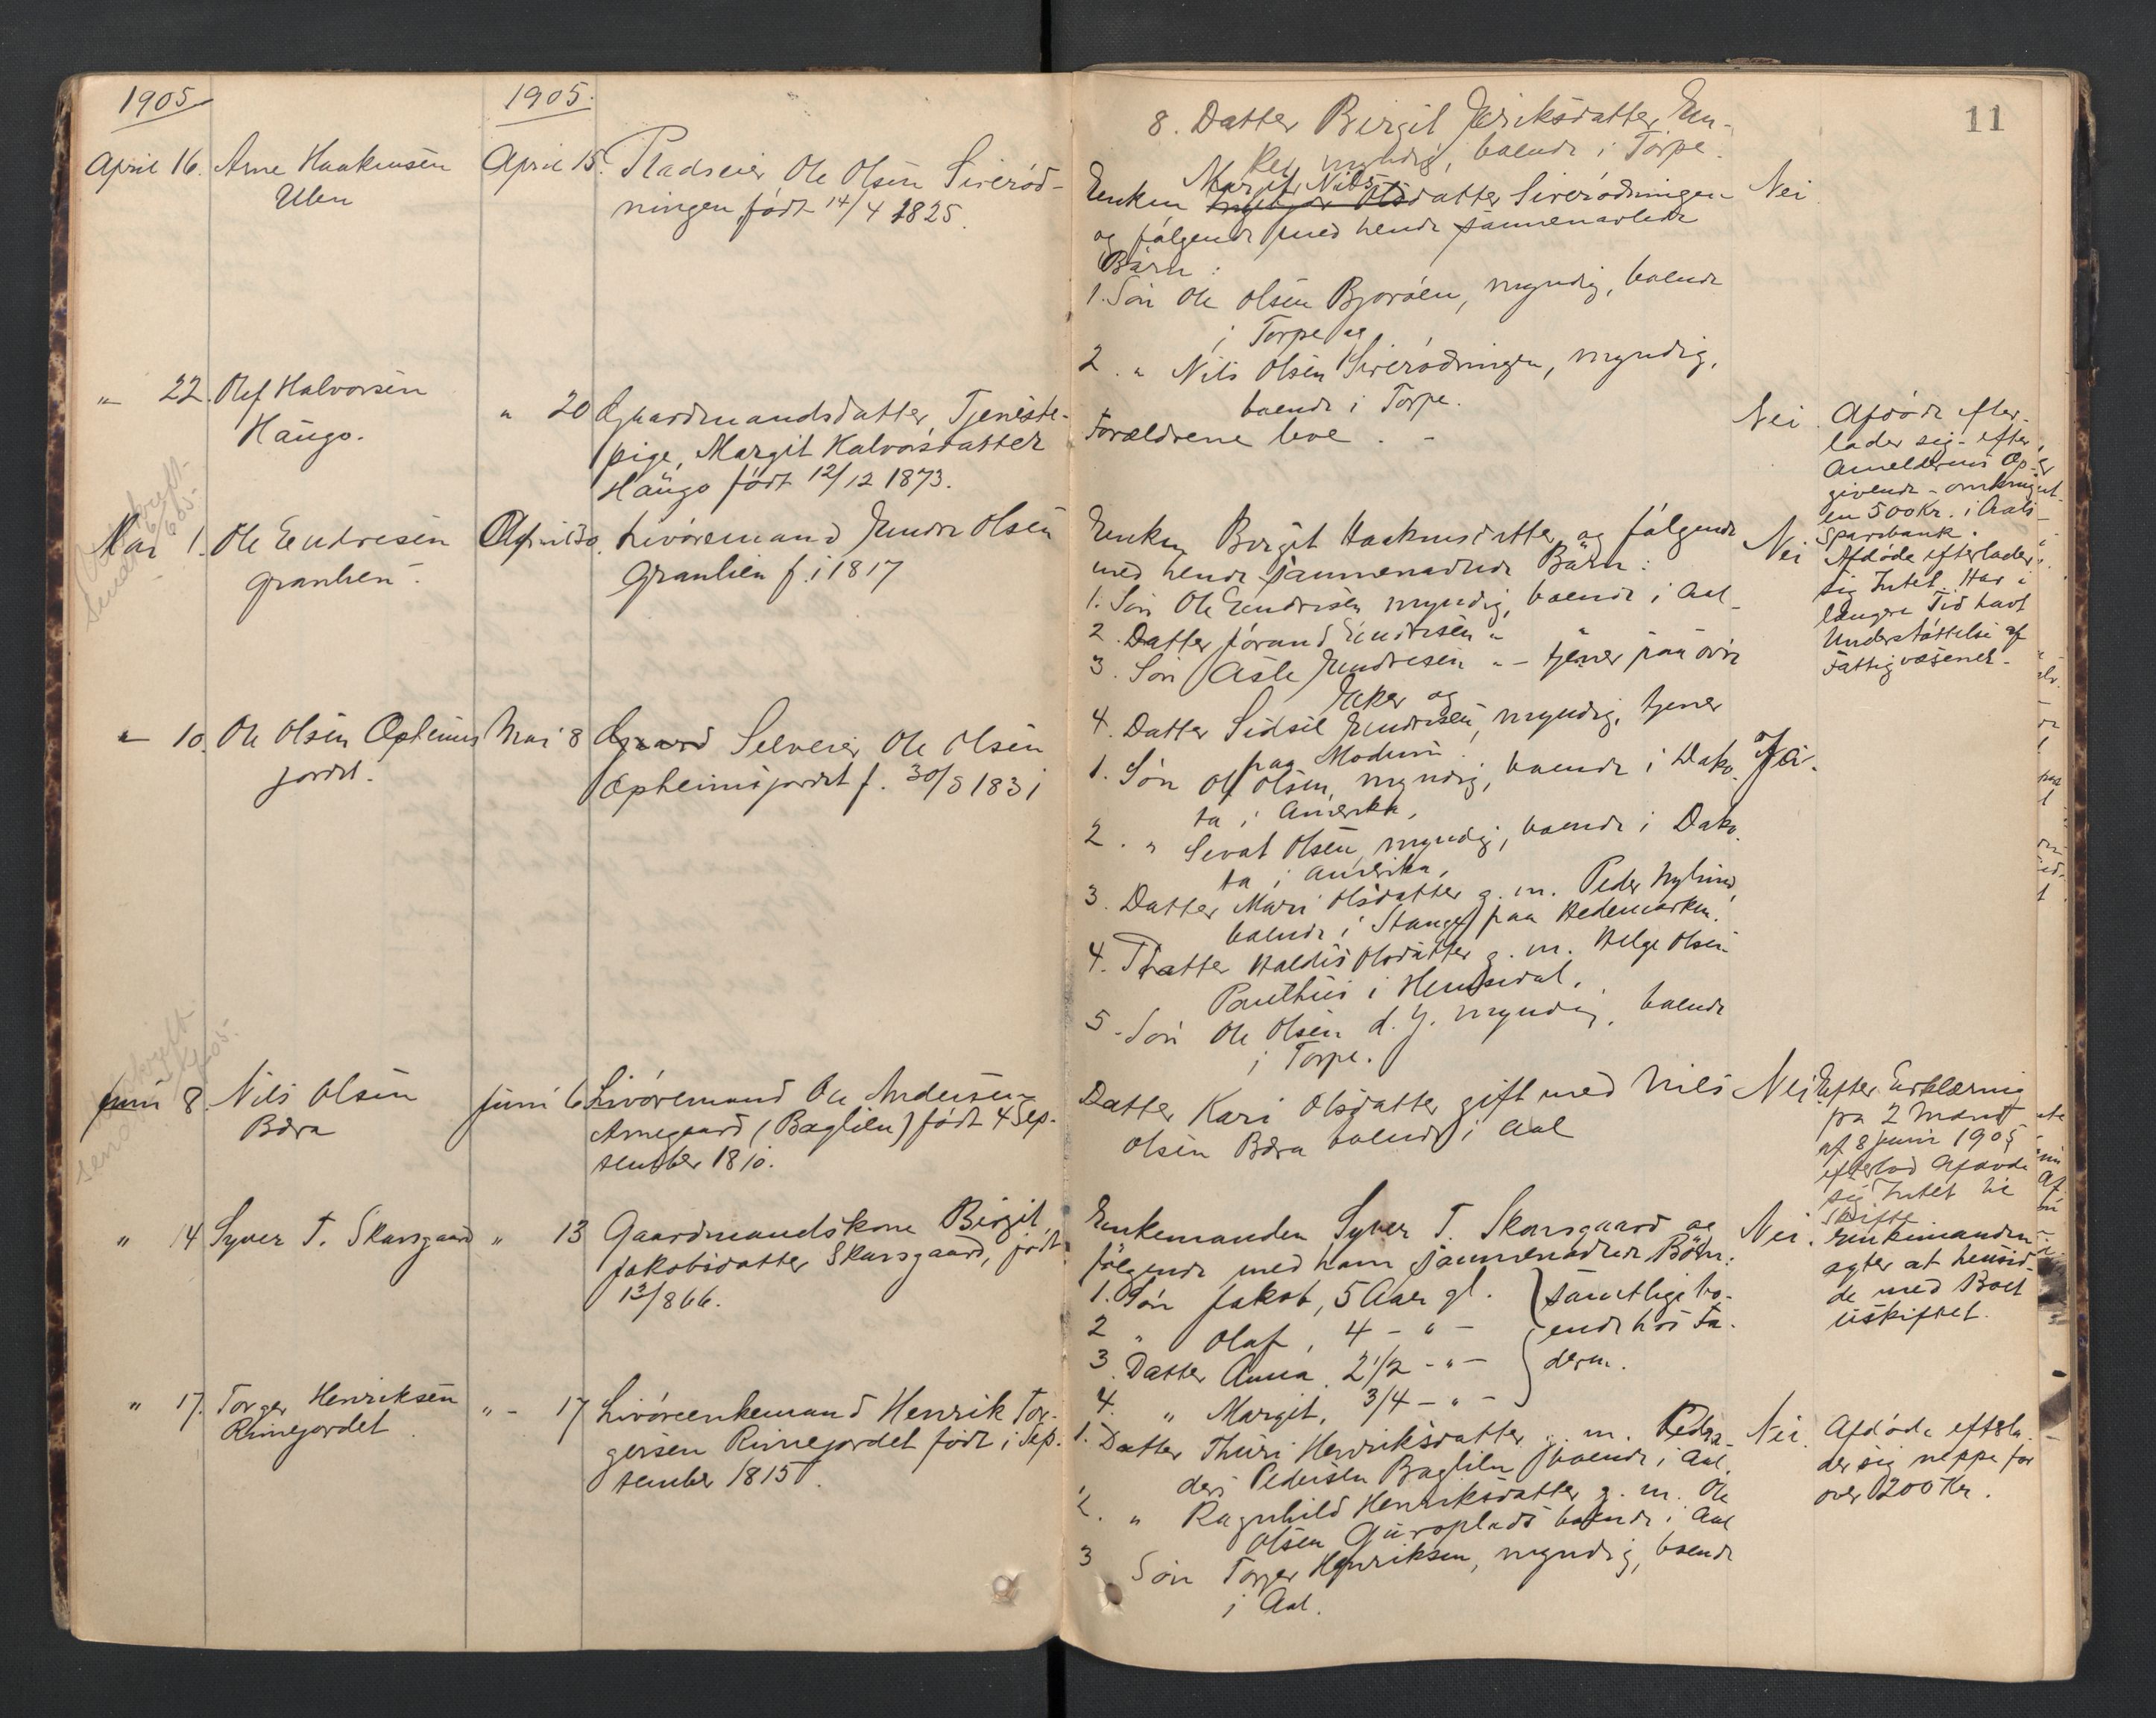 1905
1905.
11
8. Datter Birgit Eriksdatter, En-
ke, myndig, boende i Torpe.
April 16. Arne Haakensen
Ulen
April 15. Pladseier Ole Olsen Sirerød-
ningen født 14/4 1825.
Margit Nils
Enken datter Sirerødningen
og følgende med hende sammenavlede
Børn:
1. Søn Ole Olsen Bjoröen, myndig, boende
i Torpe og
2. " Nils Olsen Sirerødningen, myndig,
boende i Torpe.
Nei
" 22. Olef Halvorsen
Haugo.
" 20 Gaardmandsdatter Tjeneste-
pige, Margit Halvorsdatter
Haugo født 12/12 1873.
Forældrene leve.
Nei. Afdøde efter-
lader sig - efter
Anmelderens Op-
givende - omkring
en 500 Kr. i Aals
Sparebank.
Mai 1. Ole Endresen
Granlien.
April 30. Livøremand Endre Olsen
Granlien f. i 1817
Enken Birgit Haakensdatter og følgende
med hende sammenavlede Børn:
1. Søn Ole Endresen myndig, boende i Aal
2. Datter Jörand Endresen " "
3. Søn Asle Endresen " - tjener paa øvre
Eker og
4. Datter Sidsil Endresen, myndig, tjener
paa Modum.
Nei Afdøde efterlader
sig Intet. Har i
længere Tid havt
Understøttelse af
Fattigvæsenet.
" 10. Ole Olsen Opheims
jordet.
Mai 8 Gaard Selveier Ole Olsen
Opheimsjordet f. 30/8 1831
1. Søn Olf Olsen, myndig, boende i Dako-
ta i Amerika,
2. " Sevat Olsen, myndig, boende i Dako-
ta i Amerika,
3. Datter Mari Olsdatter g. m. Peder Nylund,
boende i Stange paa Hedemarken.
4. Datter Haldis Olsdatter g. m. Helge Olsen
i Hemsedal,
5. Søn Ole Olsen d. y. myndig, boende
i Torpe.
Ja.
Juni 8. Nils Olsen
Bæra
Juni 6 Livøremand Ole Andersen
Arnegaard (Baglien) født 4 Sep-
tember 1810.
Datter Kari Olsdatter gift med Nils
Olsen Bæra boende i Aal
Nei Efter Erklæring
fra 2 Mænd
af 8 Juni 1905
efterlod Afdøde
sig Intet til
Skifte
" 14 Syver T. Skarsgaard
" 13 Gaardmandskone Birgit
Jakobsdatter Skarsgaard, født
13/8 66.
Enkemanden Syver T. Skarsgaard og
følgende med ham sammenavlede Børn:
1. Søn Jakob, 5 Aar gl.
2 " Olaf, 4 - " -
3. Datter Anna, 2 1/2 - " -
4. " Margit, 3/4 - " -
samtlige bo-
ende hos Fa-
deren.
Nei. Enkemanden
agter at hensid-
de med Boet
uskiftet.
" 17. Torger Henriksen
Rimejordet
" - 17 Livøreenkemand Henrik Tor-
gersen Rimejordet født i Sep-
tember 1815.
1. Datter Thuri Henriksdatter g. m.
Pedersen Baglien boende i Aal,
2. " Ragnhild Henriksdatter g. m. Ole
Olsen Guroplads boende i Aal
3 Søn Torger Henriksen, myndig, boende
i Aal.
Nei. Afdøde efterla-
der sig neppe for
over 200 Kr.